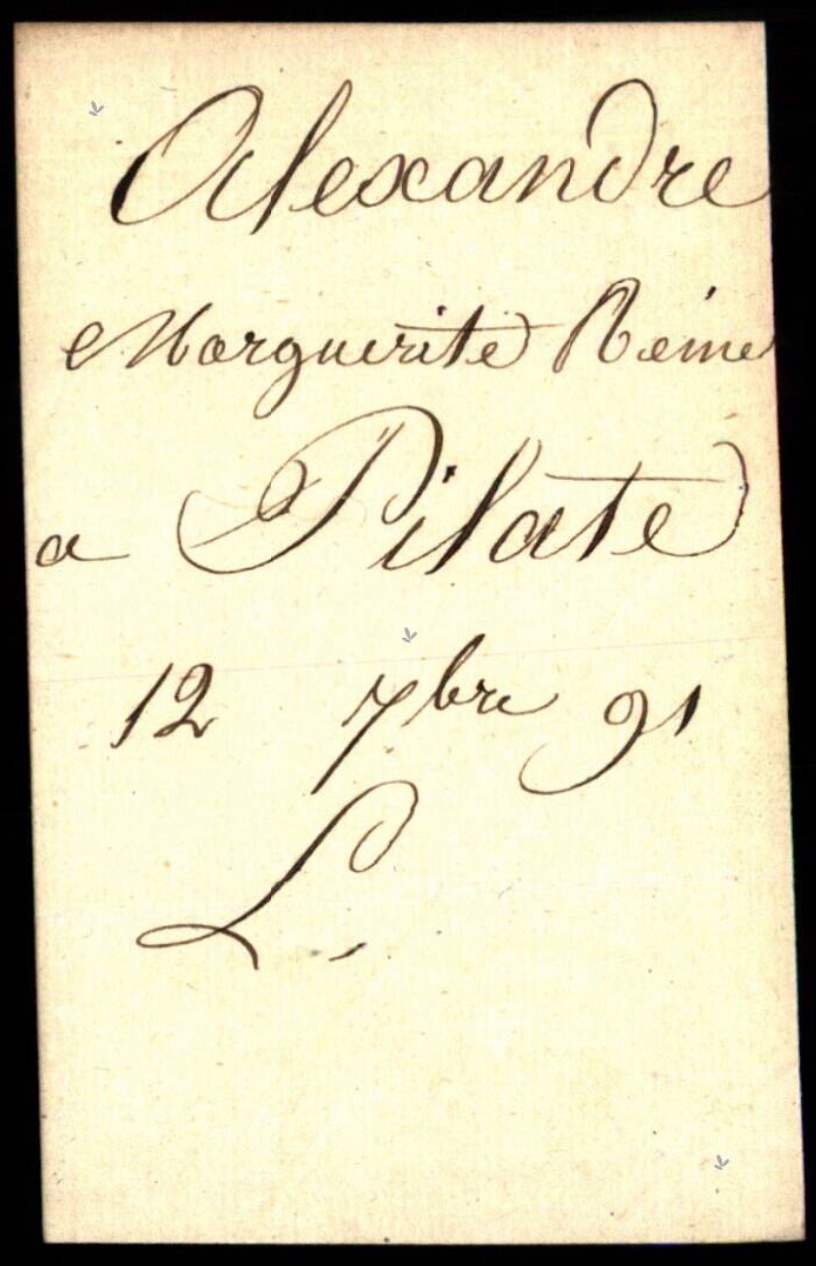 Alexandre
Marguerite Reine
a Pilate
12 7bre 91
L.